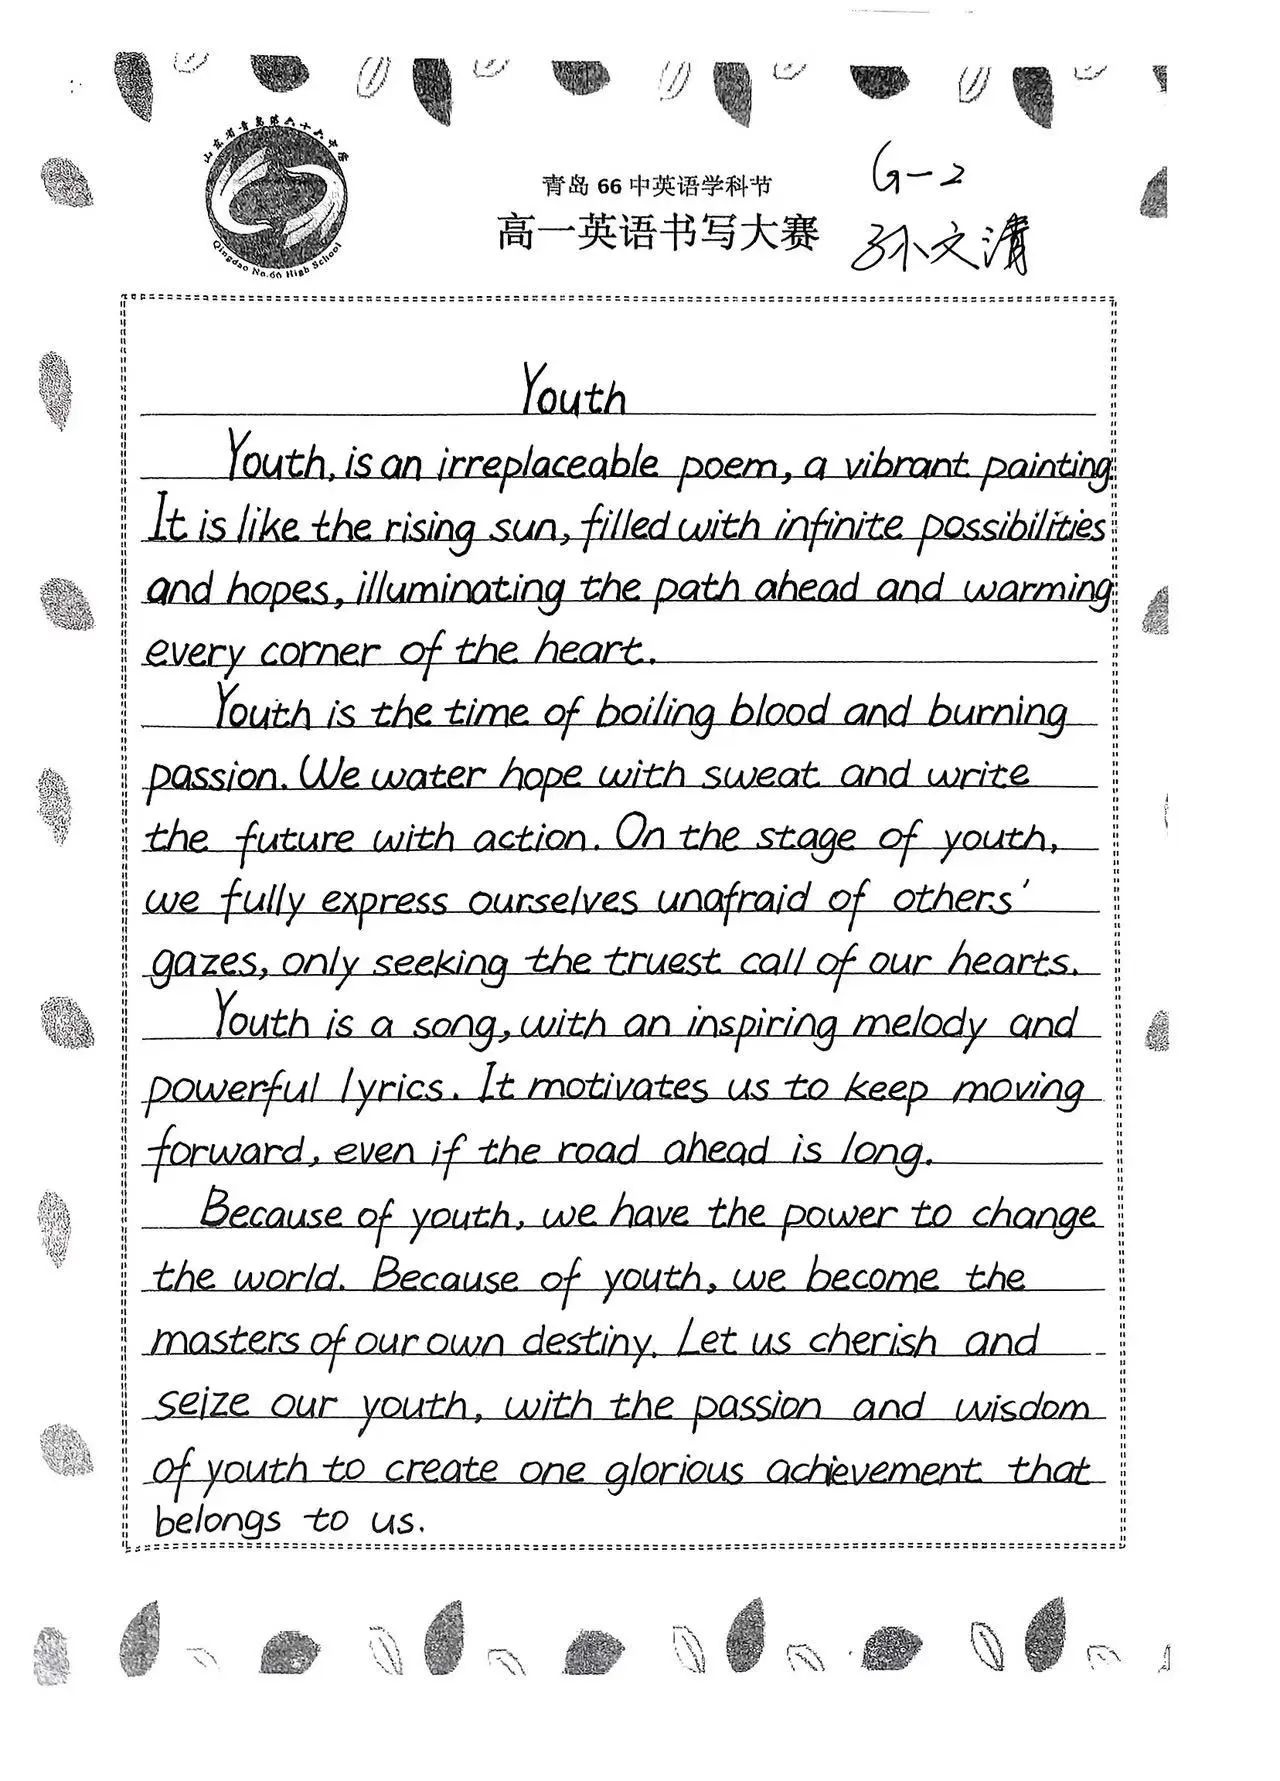 山东省青岛第六十六中学
Qingdao No.66 High School
青岛 66 中英语学科节
高一英语书写大赛
G-2
孙文清
Youth
Youth, is an irreplaceable poem, a vibrant painting.
It is like the rising sun, filled with infinite possibilities
and hopes, illuminating the path ahead and warming
every corner of the heart.
Youth is the time of boiling blood and burning
passion. We water hope with sweat and write
the future with action. On the stage of youth,
we fully express ourselves unafraid of others'
gazes, only seeking the truest call of our hearts.
Youth is a song, with an inspiring melody and
powerful lyrics. It motivates us to keep moving
forward, even if the road ahead is long.
Because of youth, we have the power to change
the world. Because of youth, we become the
masters of our own destiny. Let us cherish and
seize our youth, with the passion and wisdom
of youth to create one glorious achievement that
belongs to us.